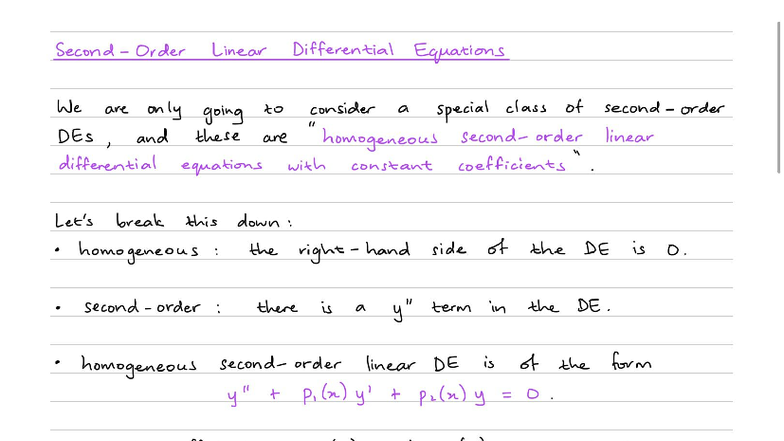 Second-Order Linear Differential Equations
We are only going to consider a special class of second-order
DEs, and these are "homogeneous second-order linear
differential equations with constant coefficients".
Let's break this down:
• homogeneous: the right-hand side of the DE is 0.
• second-order: there is a y" term in the DE.
• homogeneous second-order linear DE is of the form
y" + p₁(x) y' + p₂(x) y = 0.